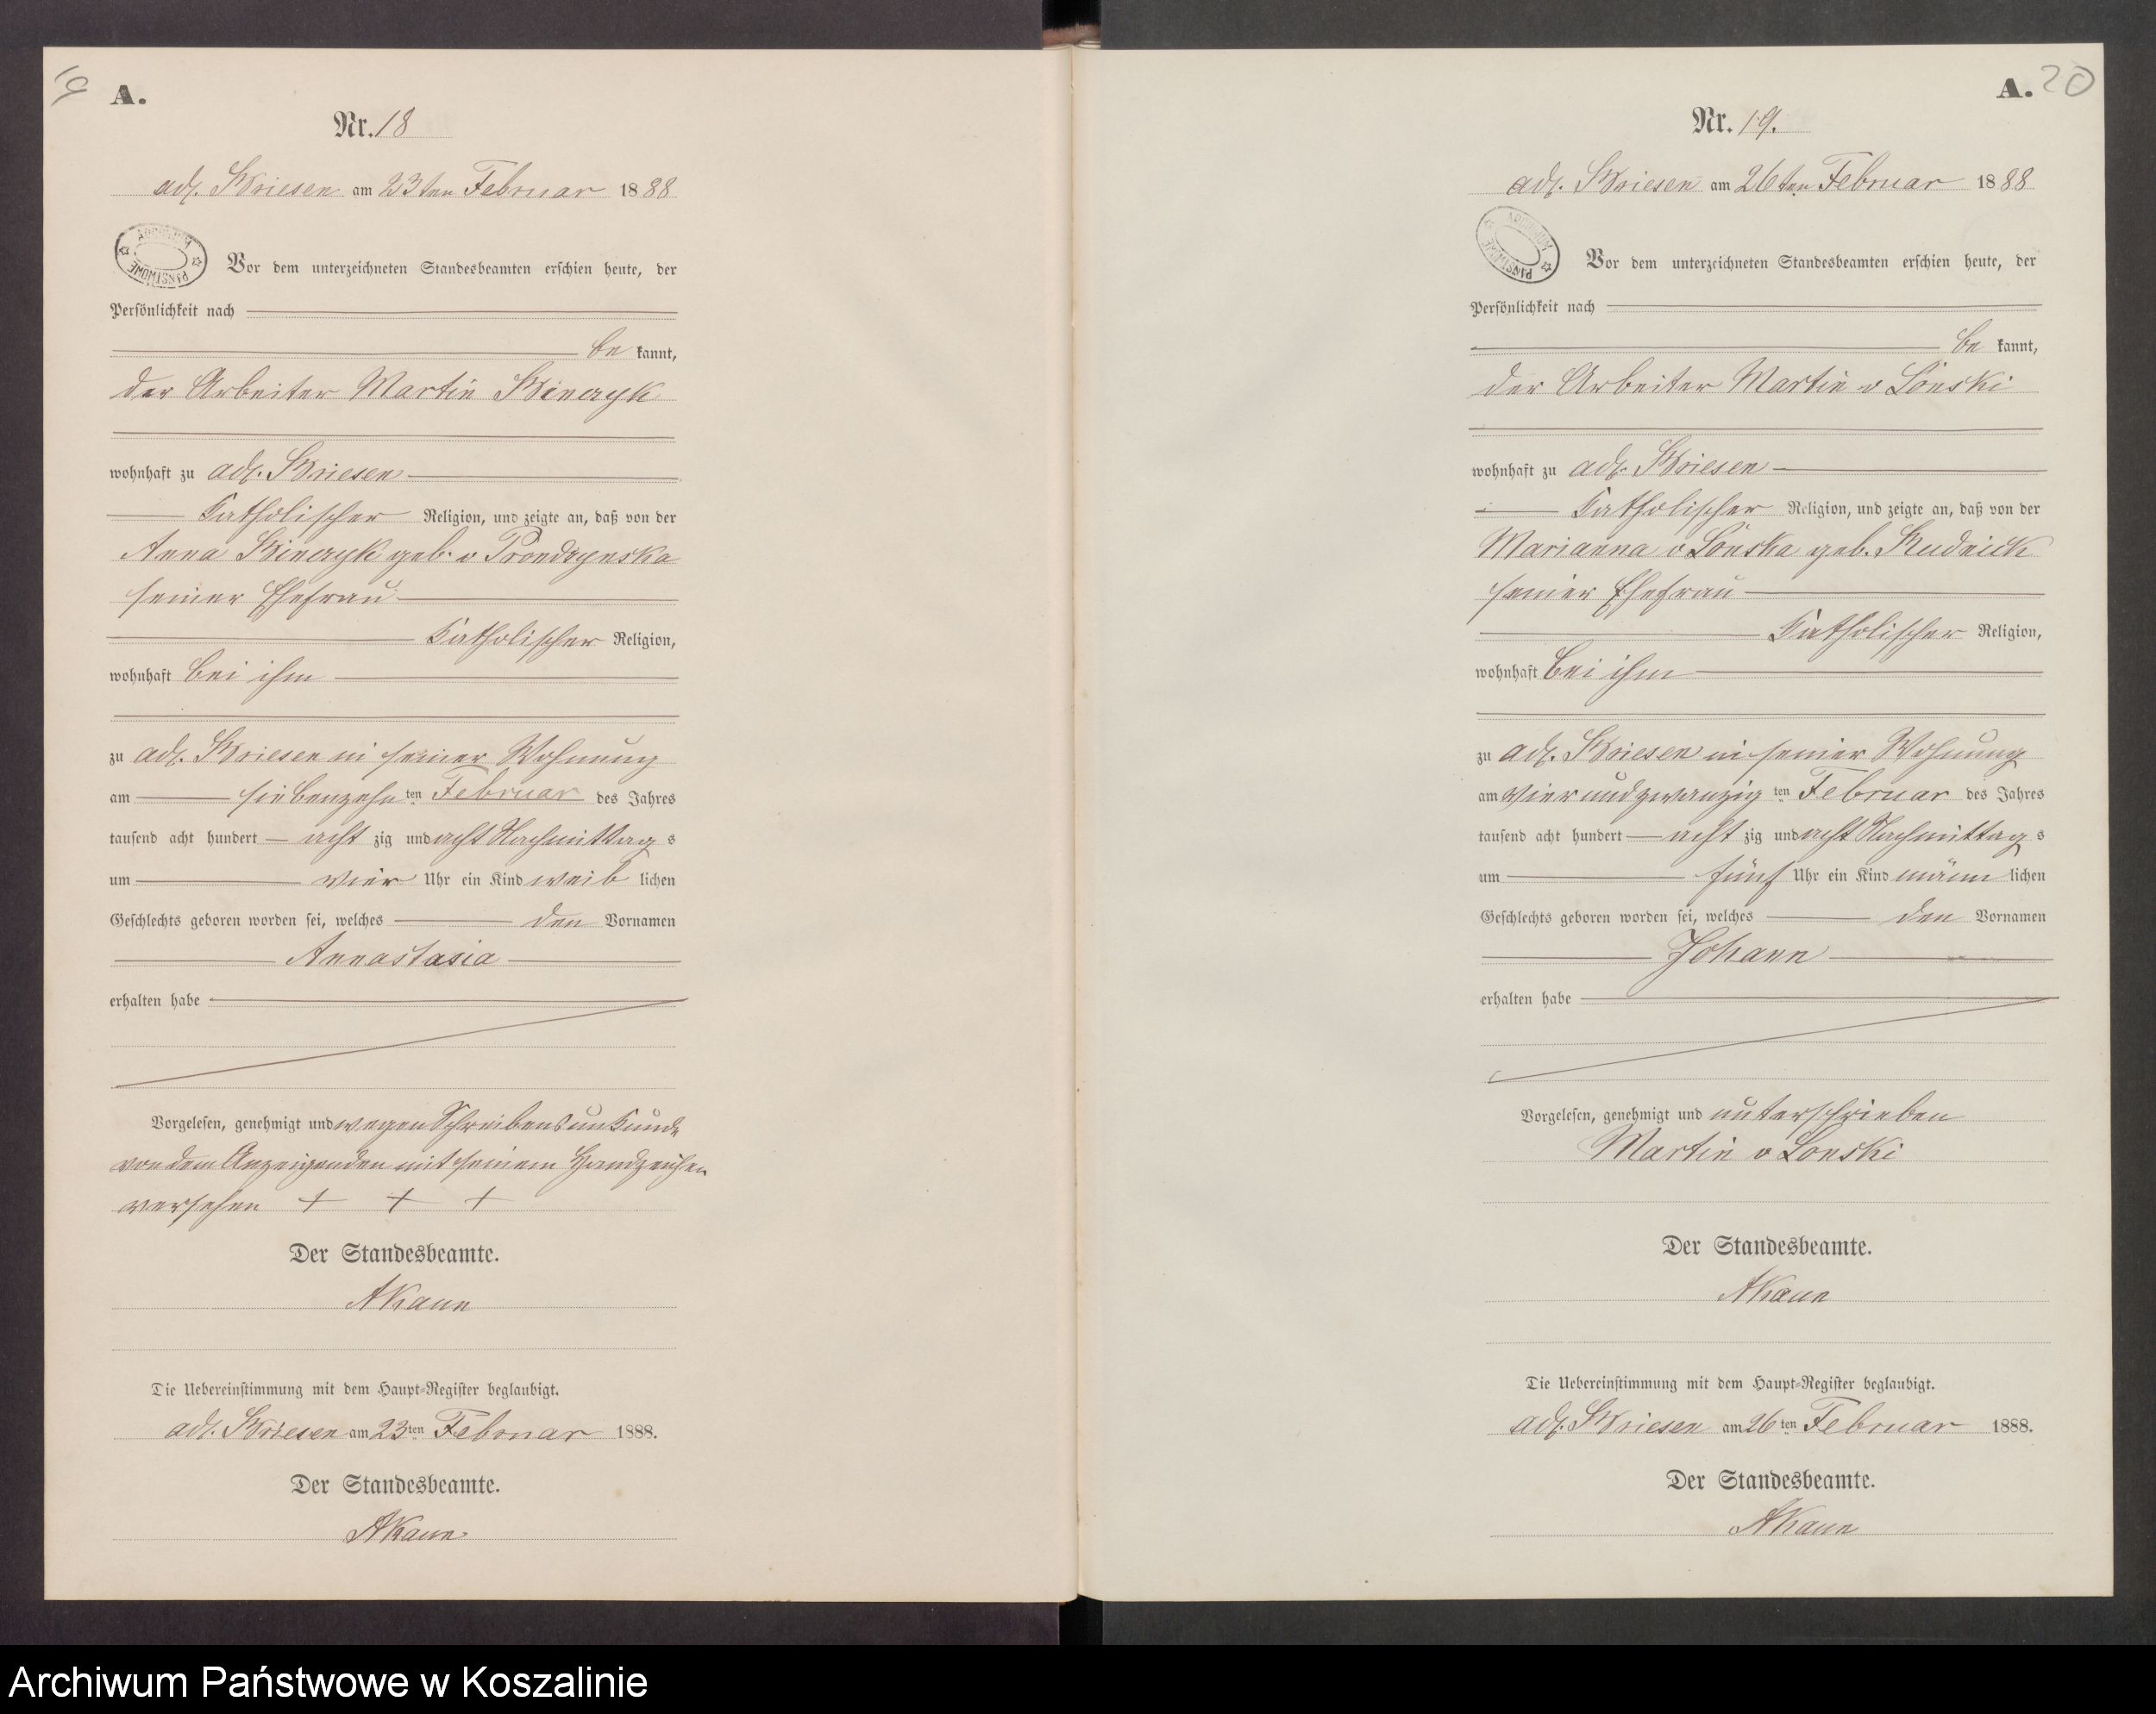 19
A.
Nr. 18
adl. Briesen am 23ten Februar 1888
ARCHIWUM PAŃSTWOWE
Vor dem unterzeichneten Standesbeamten erschien heute, der
Persönlichkeit nach
be kannt,
der Arbeiter Martin
wohnhaft zu adl. Briesen
Katholischer Religion, und zeigte an, daß von der
Anna geb. v Prondzynska
seiner Ehefrau
Katholischer Religion,
wohnhaft bei ihm
zu adl. Briesen in seiner Wohnung
am siebenzehn ten Februar des Jahres
tausend acht hundert acht zig und acht Nachmittag s
um vier Uhr ein Kind weib lichen
Geschlechts geboren worden sei, welches den Vornamen
Annastasia
erhalten habe
Vorgelesen, genehmigt und wegen Schreibensunkunde
von dem Anzeigenden mit seinem Handzeichen
versehen + + +
Der Standesbeamte.
AKaun
Die Uebereinstimmung mit dem Haupt-Register beglaubigt.
adl. Briesen am 23ten Februar 1888.
Der Standesbeamte.
AKaun
A. 20
Nr. 19.
adl. Briesen am 26ten Februar 1888
ARCHIWUM PAŃSTWOWE
Vor dem unterzeichneten Standesbeamten erschien heute, der
Persönlichkeit nach
be kannt,
der Arbeiter Martin v Lonski
wohnhaft zu adl. Briesen
Katholischer Religion, und zeigte an, daß von der
Marianna v Lonska geb. Rudnick
seiner Ehefrau
Katholischer Religion,
wohnhaft bei ihm
zu adl. Briesen in seiner Wohnung
am vierundzwanzig ten Februar des Jahres
tausend acht hundert acht zig und acht Nachmittag s
um fünf Uhr ein Kind männ lichen
Geschlechts geboren worden sei, welches den Vornamen
Johann
erhalten habe
Vorgelesen, genehmigt und unterschrieben
Martin v Lonski
Der Standesbeamte.
AKaun
Die Uebereinstimmung mit dem Haupt-Register beglaubigt.
adl. Briesen am 26ten Februar 1888.
Der Standesbeamte.
AKaun
Archiwum Państwowe w Koszalinie